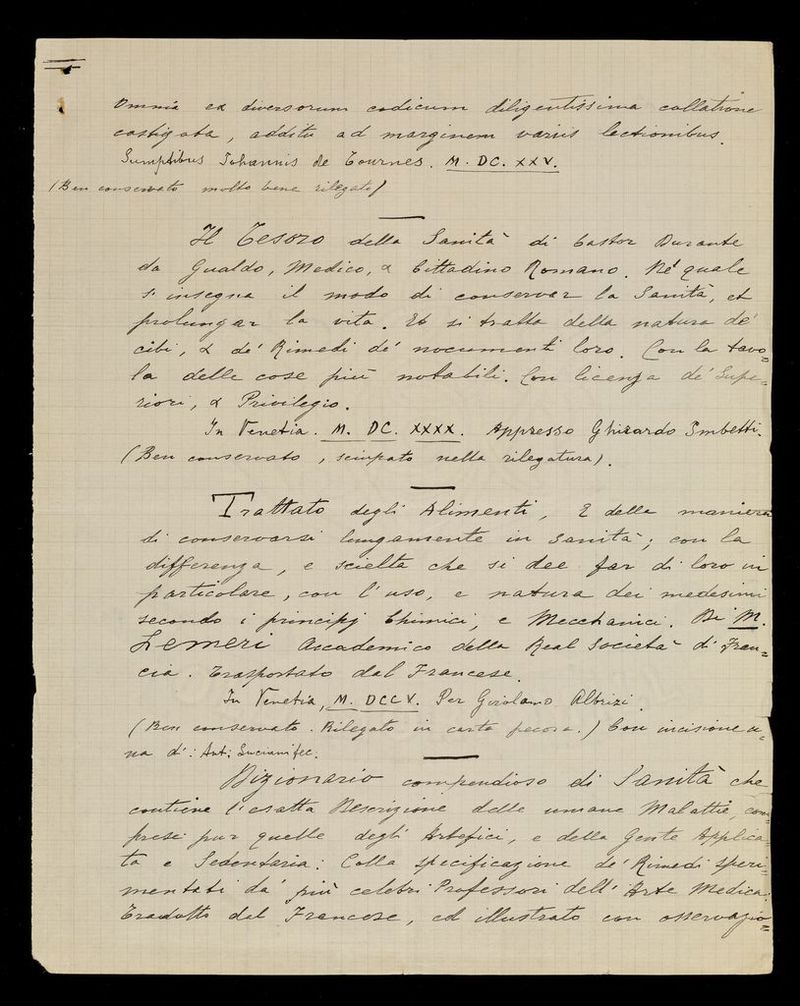 Omnia ex diversorum codicum diligentissima collatione
castigata, additis ad marginem variis lectionibus.
Sumptibus Johannis de Tournes. M. DC. XXV.
(Ben conservato molto bene rilegato)
Il Tesoro della Sanità di Castor Durante
da Gualdo, Medico, & Cittadino Romano. Nè quale
s'insegna il modo di conservar la Sanità, et
prolungar la vita. Et si tratta della natura de'
cibi, & de' Rimedi de' nocumenti loro. Con la tavo=
la delle cose più notabili. Con licenza de' Supe=
riori, & Privilegio.
In Venetia. M. DC. XXXX. Appresso Ghirardo Imbetti.
(Ben conservato, sciupato nella rilegatura).
Trattato degli Alimenti, E della maniera
di conservarsi lungamente in sanità; con la
differenza, e scielta che si dee far di loro in
particolare, con l'uso, e natura dei medesimi
secondo i principj Chimici, e Mecchanici. Di M.
Lemeri Accademico della Real Società di Fran=
cia. Trasportato dal Francese.
In Venetia, M. DCCV. Per Girolamo Albrizi.
(Ben conservato. Rilegato in carta pecora.) Con incisione u=
na di: Ant: Luciani fec.
Dizionario compendioso di Sanità che
contiene l'esatta Descrizione delle umane Malattie, com=
prese pur quelle degli Artefici, e della Gente Applica=
ta e Sedentaria: Colla specificazione de' Rimedi speri=
mentati da' più celebri Professori dell'Arte Medica:
Tradotto dal Francese, ed illustrato con osservazio=